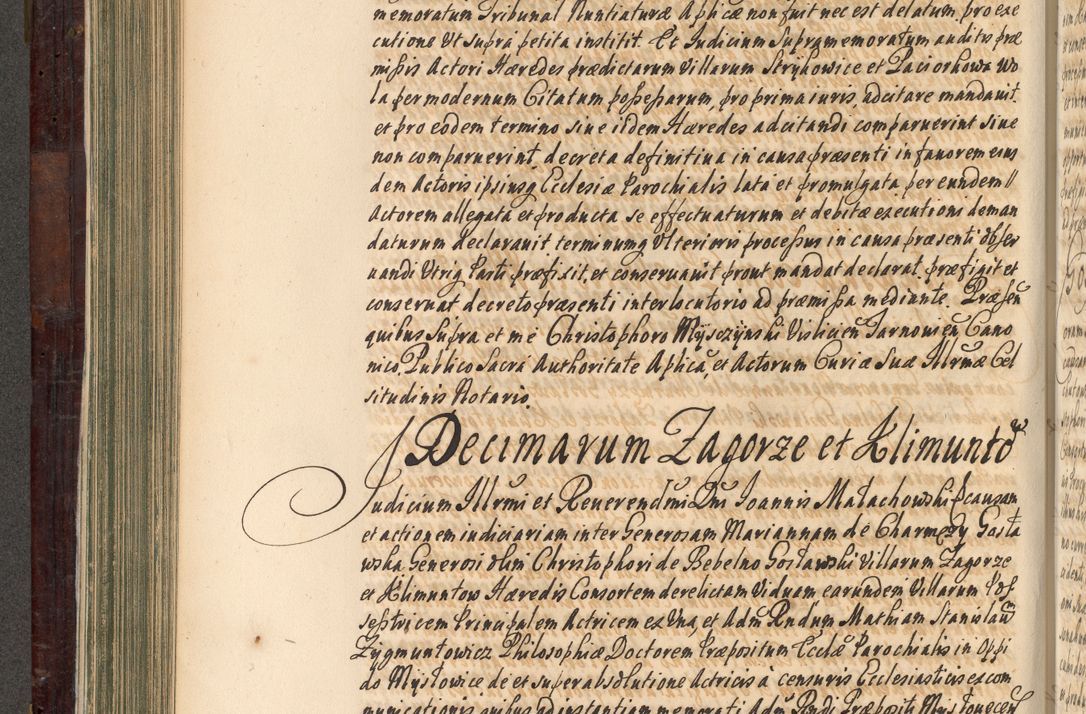 memoratum Tribunal Nuntiaturæ Aplicæ non fuit nec est delatum pro exe
cutione Vt supra petita institit. Et Iudicium Supramemoratum auditis præ
missis Actori Hæredes prædictarum Villarum Strykowice et Paciorkowa Wo
la per modernum Citatum possessarum, pro prima iuris, adcitare mandauit.
et pro eodem termino siue iidem Hæredes adcitandi comparuerint siue
non comparuerint, decreta definitiua in causa præsenti in fauorem eius
dem Actoris ipsiusq Ecclesiæ Parochialis lata et promulgata per eundem //
Actorem allegata et producta se effectuaturum et debitæ executioni deman
daturum declarauit terminumq Vlterioris processus in causa præsenti obser
uandi Vtriq Parti præfixit, et conseruauit prout mandat declarat, præfigit et
conseruat decreto præsenti interlocutorio ad præmissa mediante. Præsen
quibus supra et me Christophoro Mysczynski Vislicien Tarnouien Cano
nico, Publico Sacra Authoritate Aplica, et Actorum Curiæ Suæ Illrmæ Cel
situdinis Notario.
Decimarum Zagorze et Klimunto
Iudicium Illrmi et Reuerendmi Dni Ioannis Małachowski causam
et actionem iudiciariam inter Generosam Mariannam de Charmezy Gosła
wska Generosi olim Christophori de Bebelno Gosławski Villarum Zagorze
et Klimuntow Hæredis Consortem derelictam Viduam earundem Villarum Pos
sestricem Principalem Actricem ex Vna, et Adm Rndum Mathiam Stanisław
Zygmuntowicz Philosophiæ Doctorem Præpositum Ecclæ Parochialis in Oppi
do Mysłowice de et super absolutione Actricis à censuris Ecclesiasticis excom
municationis quibus ad instantiam memorati Adm Rndi Præpositi